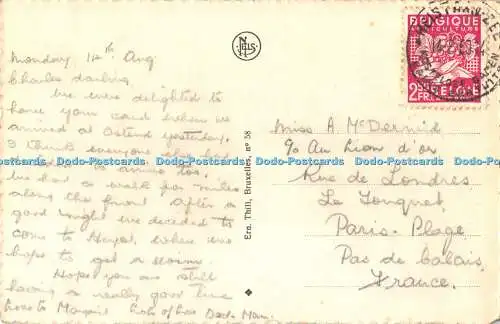 Monday, 14th Aug
Charles darling,
We were delighted to
have your card when we
arrived at Ostend yesterday.
I think everyone else had
to arrive too.
We had to walk for miles
along the front. After a
good night we decided to
come to Heyst, where we
hope to get a swim.
Hope you are still
having a really good time
Love to Margaret Lots of love Dad & Mum.
NELS
Ern. Thill, Bruxelles, nº 58
BELGIQUE
AGRICULTURE
BELGIE
2
Miss A. McDermid
c/o Au Lion d'or
Rue de Londres
Le Touquet
Paris-Plage
Pas de Calais
France.
Dodo-Postcards Dodo-Postcards Dodo-Postcards Dodo-Postcards Dodo-Postcards Dodo-Postcards